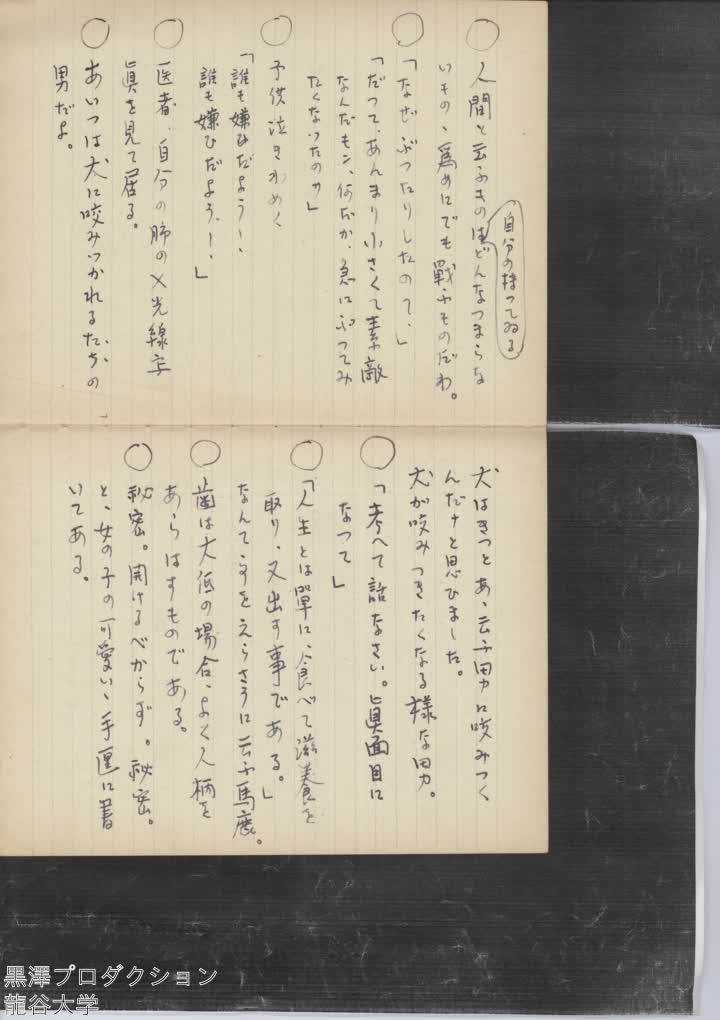 ○人間と云ふものは自分の持つてゐるどんなつまらな
いもの、為めにでも戦ふものだわ。
○「なぜ、ぶつたりしたの て、」
「だつて、あんまり小さくて素敵
なんだモン、何だか、急にぶつてみ
たくなつたのサ」
○子供泣きわめく
「誰も嫌ひだよう！、
誰も嫌ひだよう！、」
○医者、自分の肺のX光線写
眞を見て居る。
○あいつは犬に咬みつかれるたちの
男だよ。
犬はきつとあゝ云ふ男に咬みつく
んだナと思ひました。
犬が咬みつきたくなる様な男。
○「考へて話なさい。眞面目に
なつて」
○「人生とは単に、食べて滋養を
取り、又出す事である。」
なんて事をえらさうに云ふ馬鹿。
○歯は大低の場合、よく人柄を
あらはすものである。
○秘密。開けるべからず。秘密。
と、女の子の可愛いゝ手匣に書
いてある。
黒澤プロダクション
龍谷大学